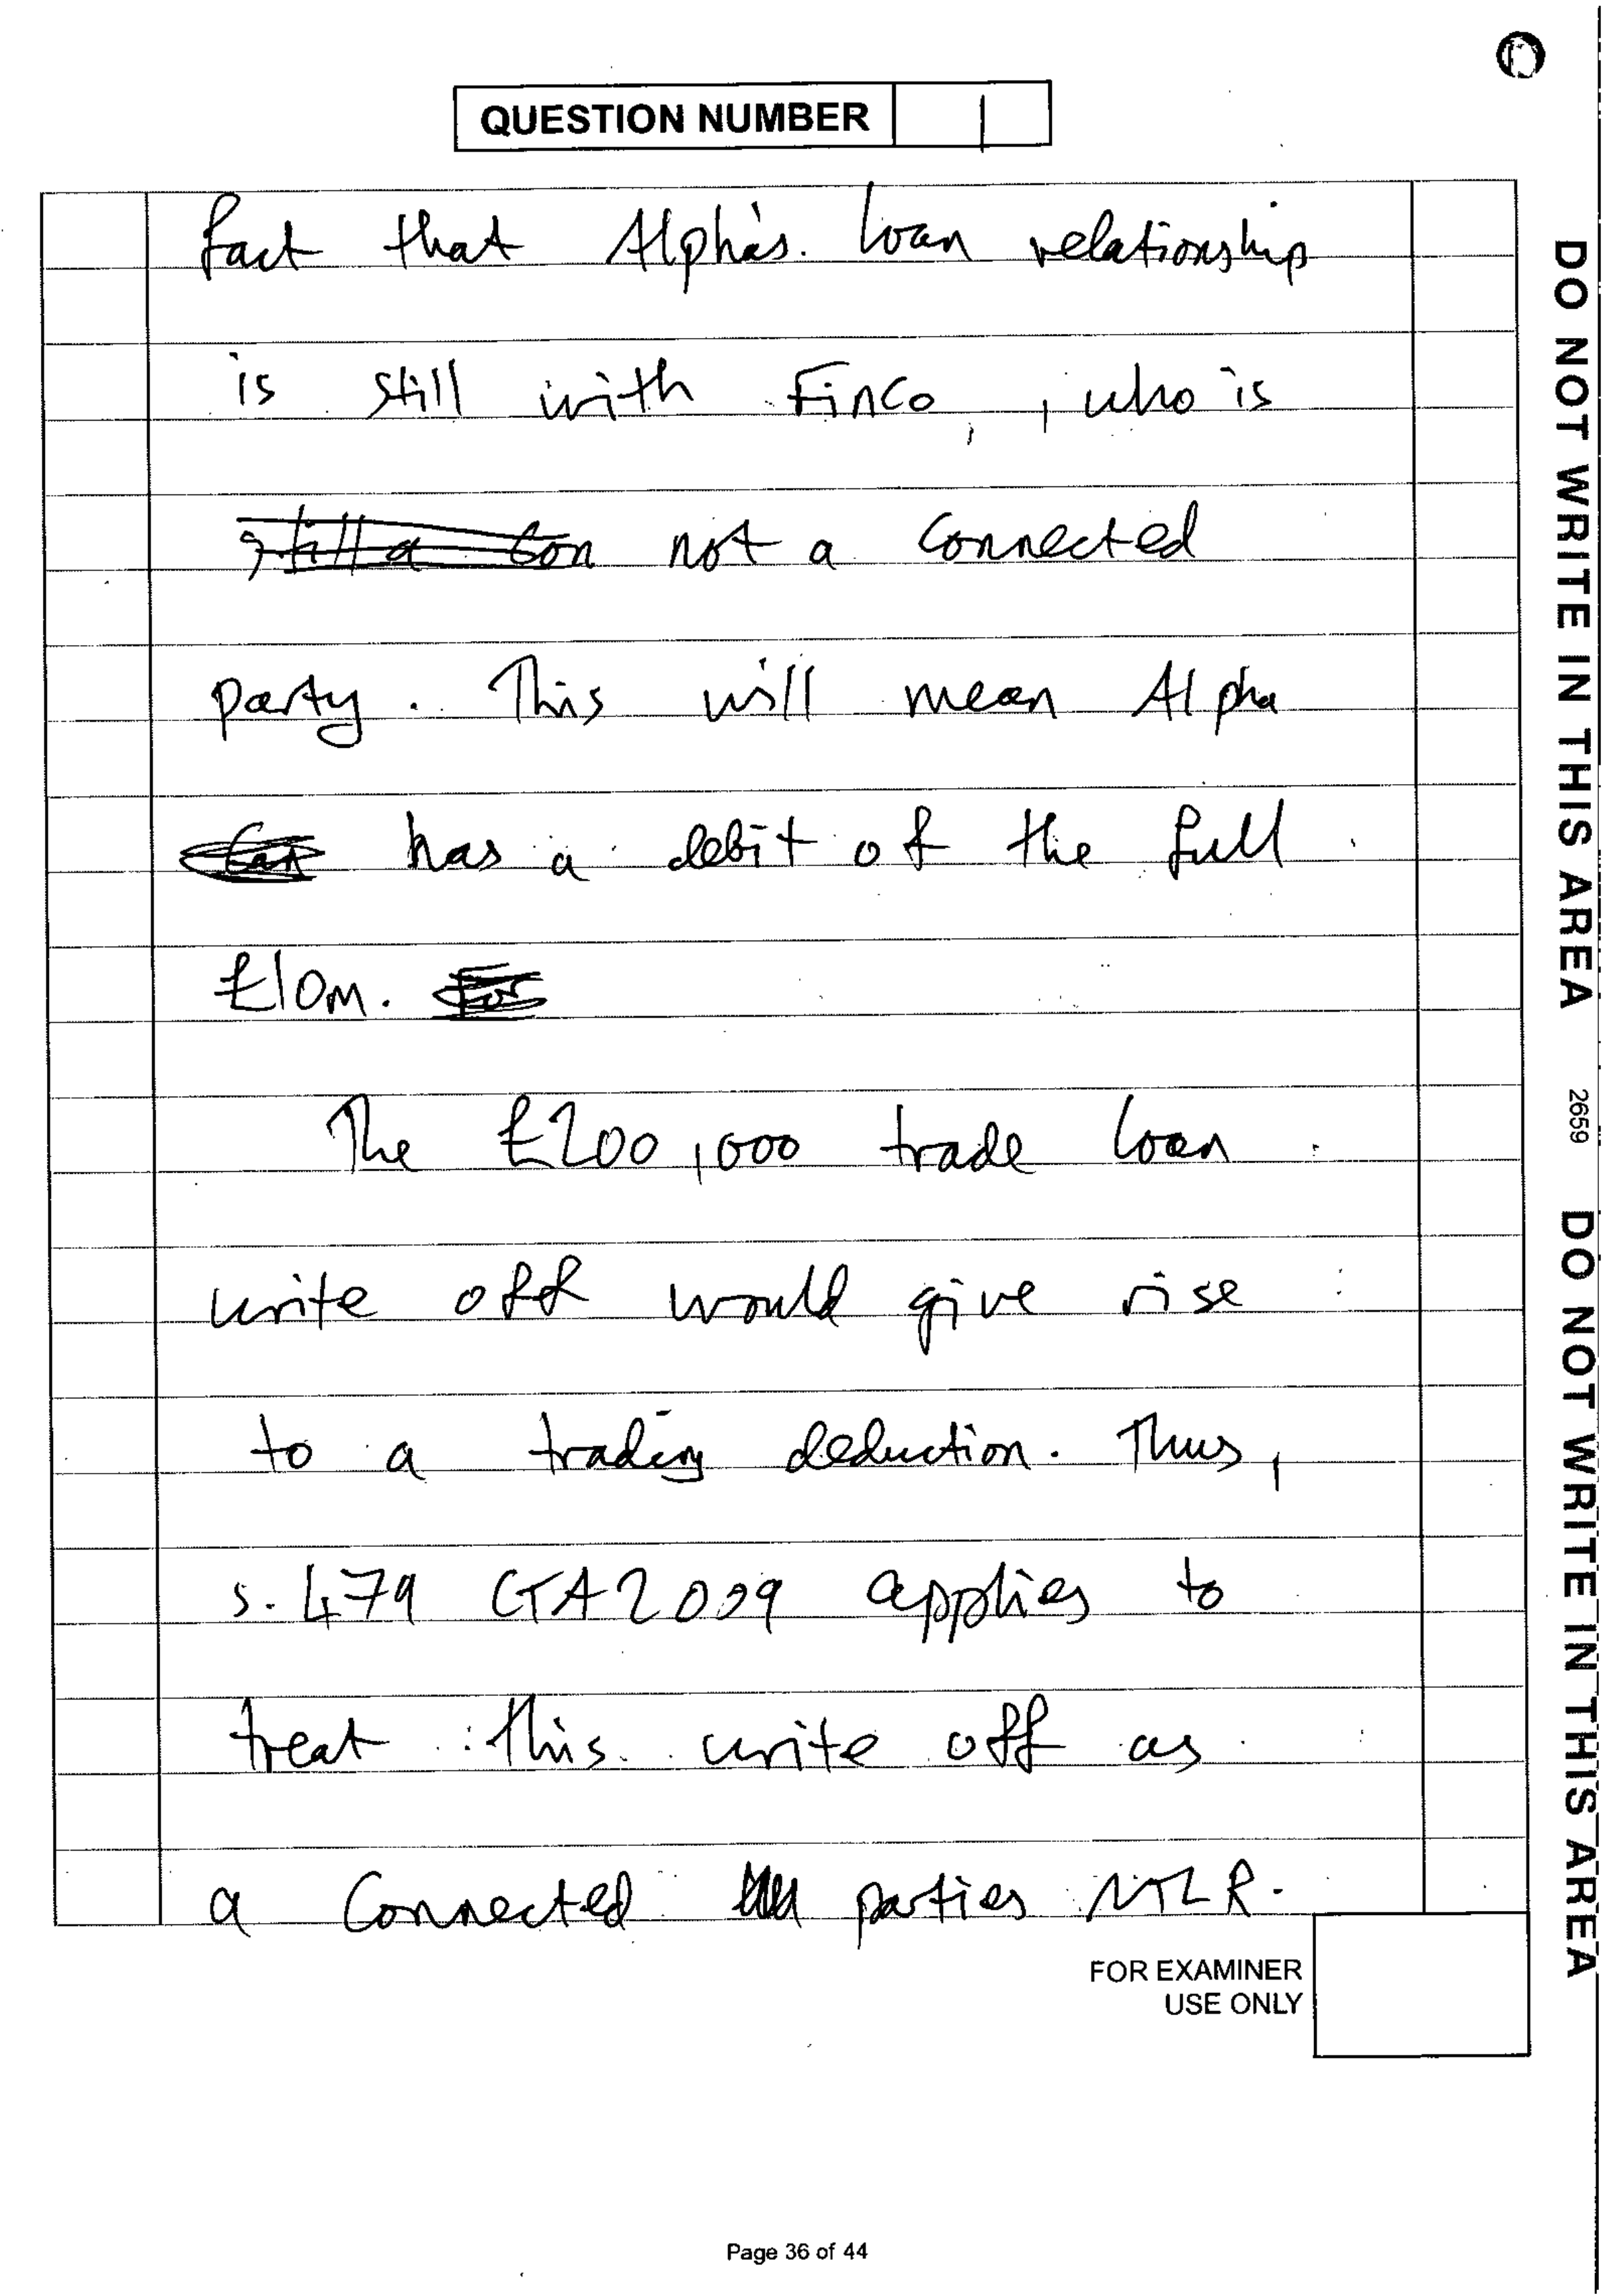 QUESTION NUMBER 1
fact that Alpha's loan relationship
is still with FinCo, who is
still a con not a connected
party. This will mean Alpha
can has a debit of the full
£10m. For
The £200,000 trade loan
write off would give rise
to a trading deduction. Thus,
s.479 CTA2009 applies to
treat this write off as
a connected parties NTLR.
FOR EXAMINER
USE ONLY
Page 36 of 44
DO NOT WRITE IN THIS AREA 2659 DO NOT WRITE IN THIS AREA